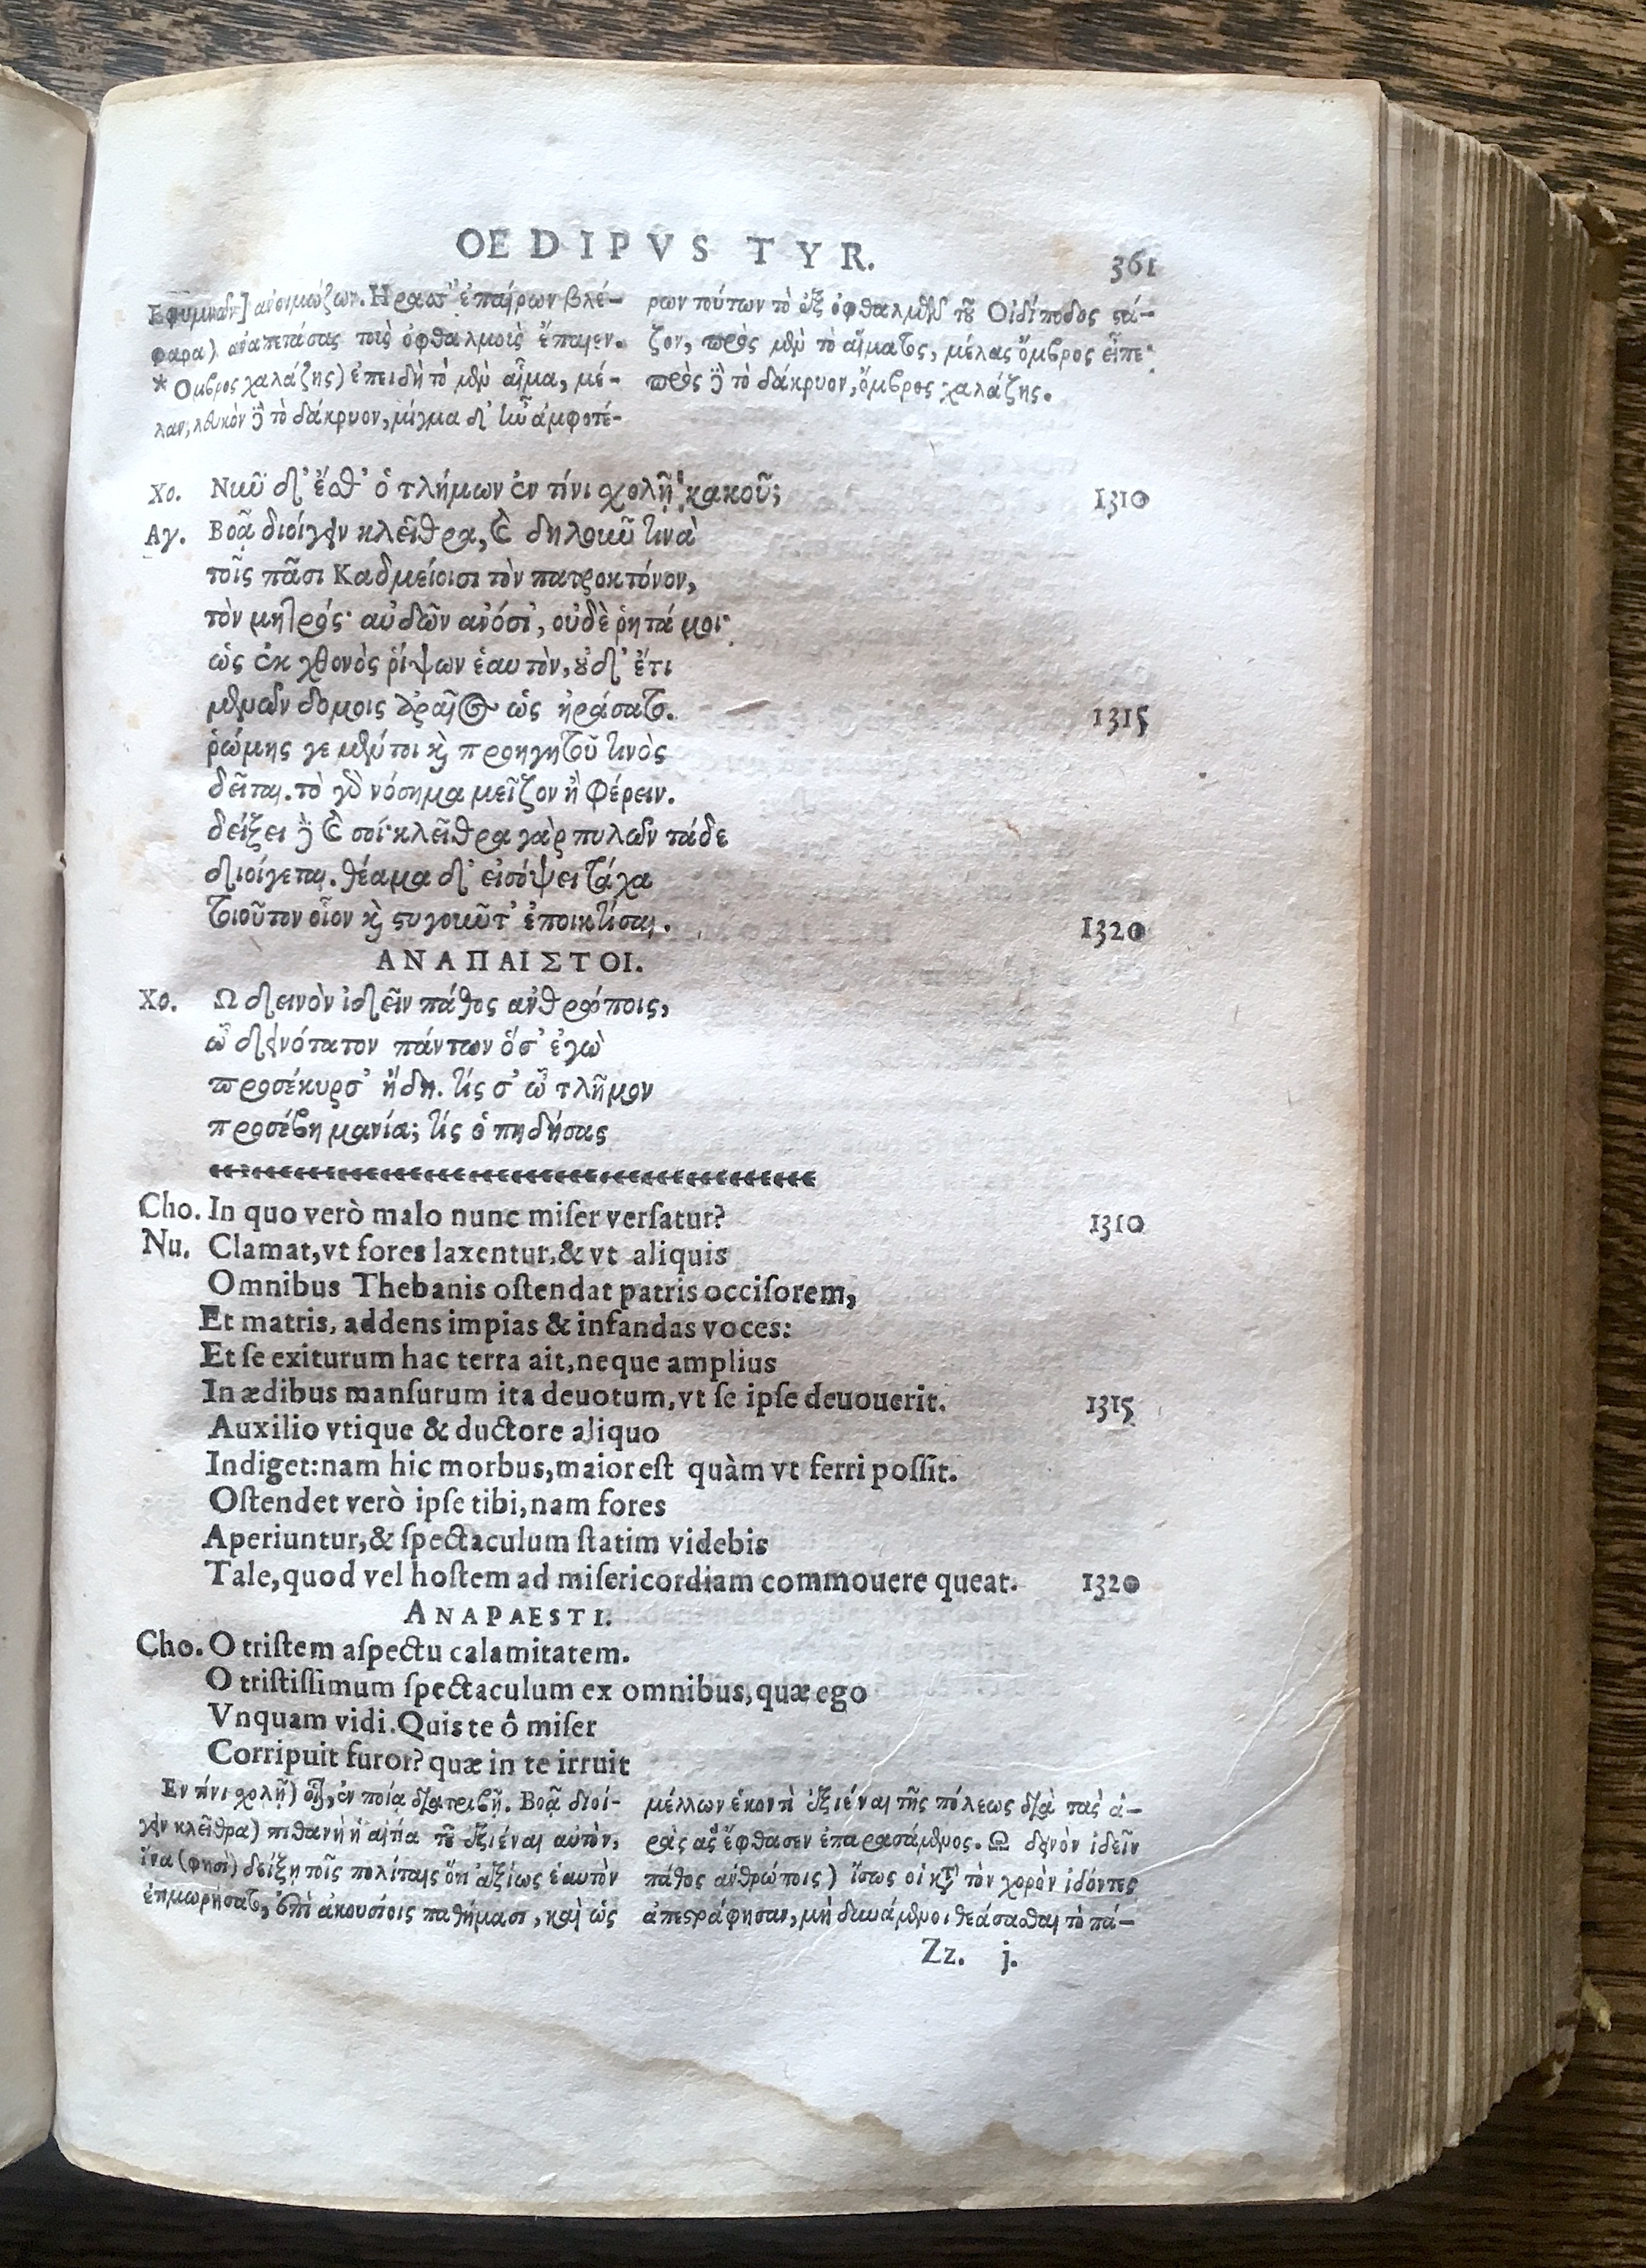 OEDIPVS TYR. 361
Εφυμνῶν] ἀνοιμώζων. Ηρασσ' ἐπαίρων βλέ-
φαρα) ἀναπετάσας τοῖς ὀφθαλμοῖς ἔπαιεν.
* Ομβρος χαλάζης) ἐπειδὴ τὸ μὲν αἷμα, μέ-
λαν, λευκὸν δὲ τὸ δάκρυον, μίγμα δ' ἦν ἀμφοτέ-
ρων τούτων τὸ ἐξ ὀφθαλμῶν τοῦ Οἰδίποδος στά-
ζον, πρὸς μὲν τὸ αἵματος, μέλας ὄμβρος εἶπε·
πρὸς δὲ τὸ δάκρυον, ὄμβρος χαλάζης.
Χο. Νῦν δ' ἔσθ' ὁ τλήμων ἐν τίνι χολῇ κακοῦ; 1310
Αγ. Βοᾷ διοίγειν κλεῖθρα, καὶ δηλοῦν τινὰ
τοῖς πᾶσι Καδμείοισι τὸν πατροκτόνον,
τὸν μητρός· αὐδῶν ἀνόσι', οὐδὲ ῥητά μοι·
ὡς ἐκ χθονὸς ῥίψων ἑαυτὸν, οὐδ' ἔτι
μενῶν δόμοις ἀραῖος ὡς ἠράσατο. 1315
ῥώμης γε μέντοι καὶ προηγητοῦ τινὸς
δεῖται. τὸ γὰρ νόσημα μεῖζον ἢ φέρειν.
δείξει δὲ καὶ σοί· κλεῖθρα γὰρ πυλῶν τάδε
διοίγεται. θέαμα δ' εἰσόψει τάχα
τοιοῦτον οἷον καὶ στυγοῦντ' ἐποικτίσαι. 1320
ΑΝΑΠΑΙΣΤΟΙ.
Χο. Ω δεινὸν ἰδεῖν πάθος ἀνθρώποις,
ὦ δεινότατον πάντων ὅσ' ἐγὼ
προσέκυρσ' ἤδη. τίς σ' ὦ τλῆμον
προσέβη μανία; τίς ὁ πηδήσας
Cho. In quo verò malo nunc miſer verſatur? 1310
Nu. Clamat, vt fores laxentur, & vt aliquis
Omnibus Thebanis oſtendat patris occiſorem,
Et matris, addens impias & infandas voces:
Et ſe exiturum hac terra ait, neque amplius
In ædibus manſurum ita deuotum, vt ſe ipſe deuouerit. 1315
Auxilio vtique & ductore aliquo
Indiget: nam hic morbus, maior eſt quàm vt ferri poſſit.
Oſtendet verò ipſe tibi, nam fores
Aperiuntur, & ſpectaculum ſtatim videbis
Tale, quod vel hoſtem ad miſericordiam commouere queat. 1320
ANAPAESTI.
Cho. O triſtem aſpectu calamitatem.
O triſtiſſimum ſpectaculum ex omnibus, quæ ego
Vnquam vidi. Quis te ô miſer
Corripuit furor? quæ in te irruit
Εν τίνι χολῇ) οἷον, ἐν ποίᾳ διατριβῇ. Βοᾷ διοί-
γειν κλεῖθρα) πιθανὴ ἡ αἰτία τοῦ ἐξιέναι αὐτὸν,
ἵνα (φησὶ) δείξῃ τοῖς πολίταις ὅτι ἀξίως ἑαυτὸν
ἐτιμωρήσατο, ἐπὶ ἀκουσίοις παθήμασι, καὶ ὡς
μέλλων ἑκοντὶ ἐξιέναι τῆς πόλεως διὰ τὰς ἀ-
ρὰς ἃς ἔφθασεν ἐπαρασάμενος. Ω δεινὸν ἰδεῖν
πάθος ἀνθρώποις) ἴσως οἱ κατὰ τὸν χορὸν ἰδόντες
ἀπεστράφησαν, μὴ δυνάμενοι θεάσασθαι τὸ πά-
Zz. j.